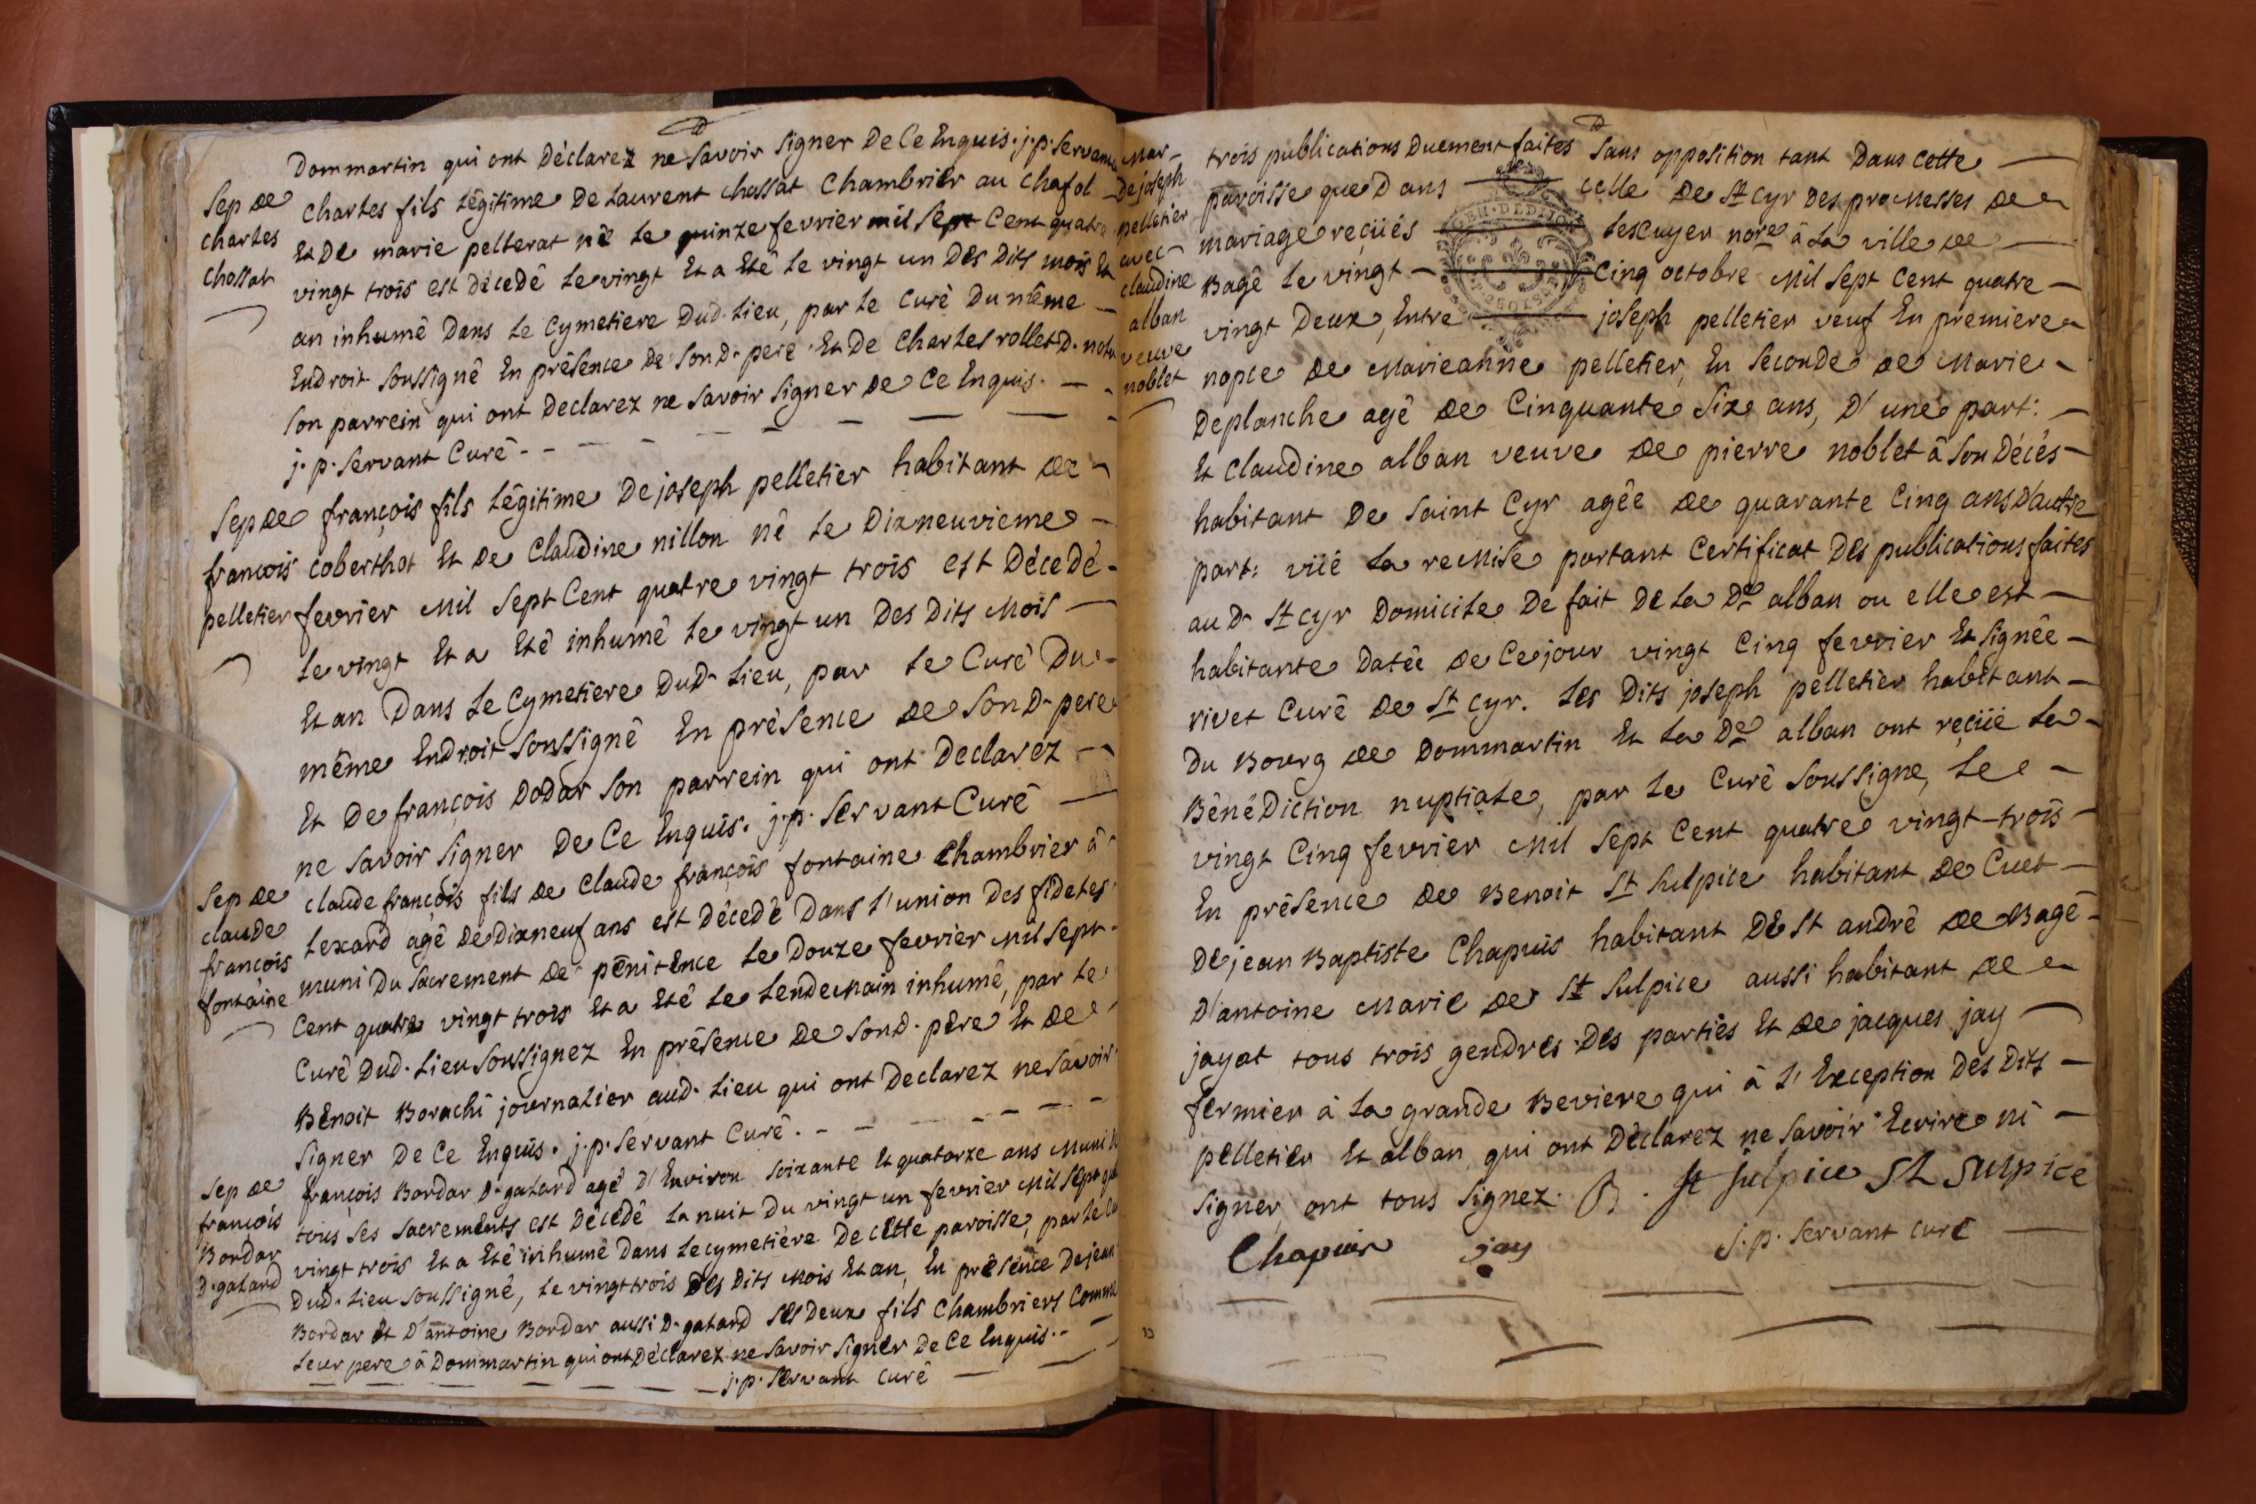 Dommartin qui ont Déclarez ne savoir signer De Ce Enquis. j. p. servant
sep de
charles
chossat
charles fils légitime De Laurent chossat Chambrier au Chafol
Et De marie pelterat né le quinze fevrier mil sept Cent quatre
vingt trois est décedé le vingt Et a Eté le vingt un Des Dits mois Et
an inhumé Dans le Cymetiere Dud. Lieu, par le Curé Du même
Endroit soussigné En présence De son D. pere Et De Charles rollet D.
son parrein qui ont Declarez ne savoir signer de Ce Enquis.
j. p. servant Curé
sep de
francois
pelletier
françois fils légitime De joseph pelletier habitant de
coberthot Et De Claudine nillon né le Dixneuvieme
fevrier Mil Sept Cent quatre vingt trois est Décedé
le vingt Et a Eté inhumé le vingt un Des Dits Mois
Et an Dans le Cymetiere Dud. Lieu, par le Curé Du
même Endroit soussigné En présence de son D. pere
Et De françois Dodar son parrein qui ont Declarez
ne savoir signer De Ce Enquis. j. p. servant Curé
sep de
claude
francois
fontaine
claude françois fils de Claude françois fontaine Chambrier à
Lexard agé De Dixneuf ans est Décedé Dans l'union Des fideles
muni Du sacrement de pénitence le Douze fevrier Mil sept
Cent quatre vingt trois Et a Eté le lendemain inhumé, par le
Curé Dud. Lieu soussignez En présence de son D. pere Et de
Benoit Borachi journalier aud. Lieu qui ont Declarez ne savoir
signer De Ce Enquis. j. p. servant Curé.
sep de
francois
Bordar
D. galand
françois Bordar D. galand agé D'Environ soixante Et quatorze ans Muni
tous ses sacrements est Décedé la nuit Du vingt un fevrier Mil sept
vingt trois Et a Eté inhumé Dans le cymetiére De cette paroisse, par le
Dud. Lieu soussigné, le vingt trois Des Dits Mois Et an, En présence De jean
Bordar Et D'antoine Bordar aussi D. galand ses Deux fils Chambriers Comme
leur pere à Dommartin qui ont Déclarez ne savoir signer De Ce Enquis.
j. p. servant Curé
Mar
De joseph
pelletier
avec
claudine
alban
veuve
noblet
trois publications Duement faites sans opposition tant Dans cette
paroisse que Dans celle de St Cyr Des promesses de
mariage reçüés Lescuyer nore à la ville de
Bagé le vingt Cinq octobre Mil sept Cent quatre
vingt Deux, Entre joseph pelletier veuf En premiere
nopce de Marieanne pelletier, En seconde de Marie
Deplanche agé de Cinquante six ans, D'une part:
Et Claudine alban veuve de pierre noblet à son Décés
habitant De saint Cyr agée de quarante Cinq ans D'autre
part: vüé la remise portant Certificat Des publications faites
au D. St Cyr Domicile De fait De la De alban ou elle est
habitante Datée de Ce jour vingt Cinq fevrier Et signée
rivet Curé de St Cyr. Les Dits joseph pelletier habitant
Du Bourg de Dommartin Et la De alban ont reçüé la
BénéDiction nuptiale, par le Curé soussigne, le
vingt Cinq fevrier Mil sept Cent quatre vingt trois
En présence de Benoit St Sulpice habitant de Cuet
De jean Baptiste Chapuis habitant De St andré de Bagé
D'antoine Marie de St Sulpice aussi habitant de
jayat tous trois gendres Des parties Et de jacques jay
fermier à la grande Beviere qui à l'Exception Des Dits
pelletier Et alban qui ont Déclarez ne savoir Ecrire ni
signer, ont tous signez. B. St Sulpice St Sulpice
Chapuis jay j. p. servant curé